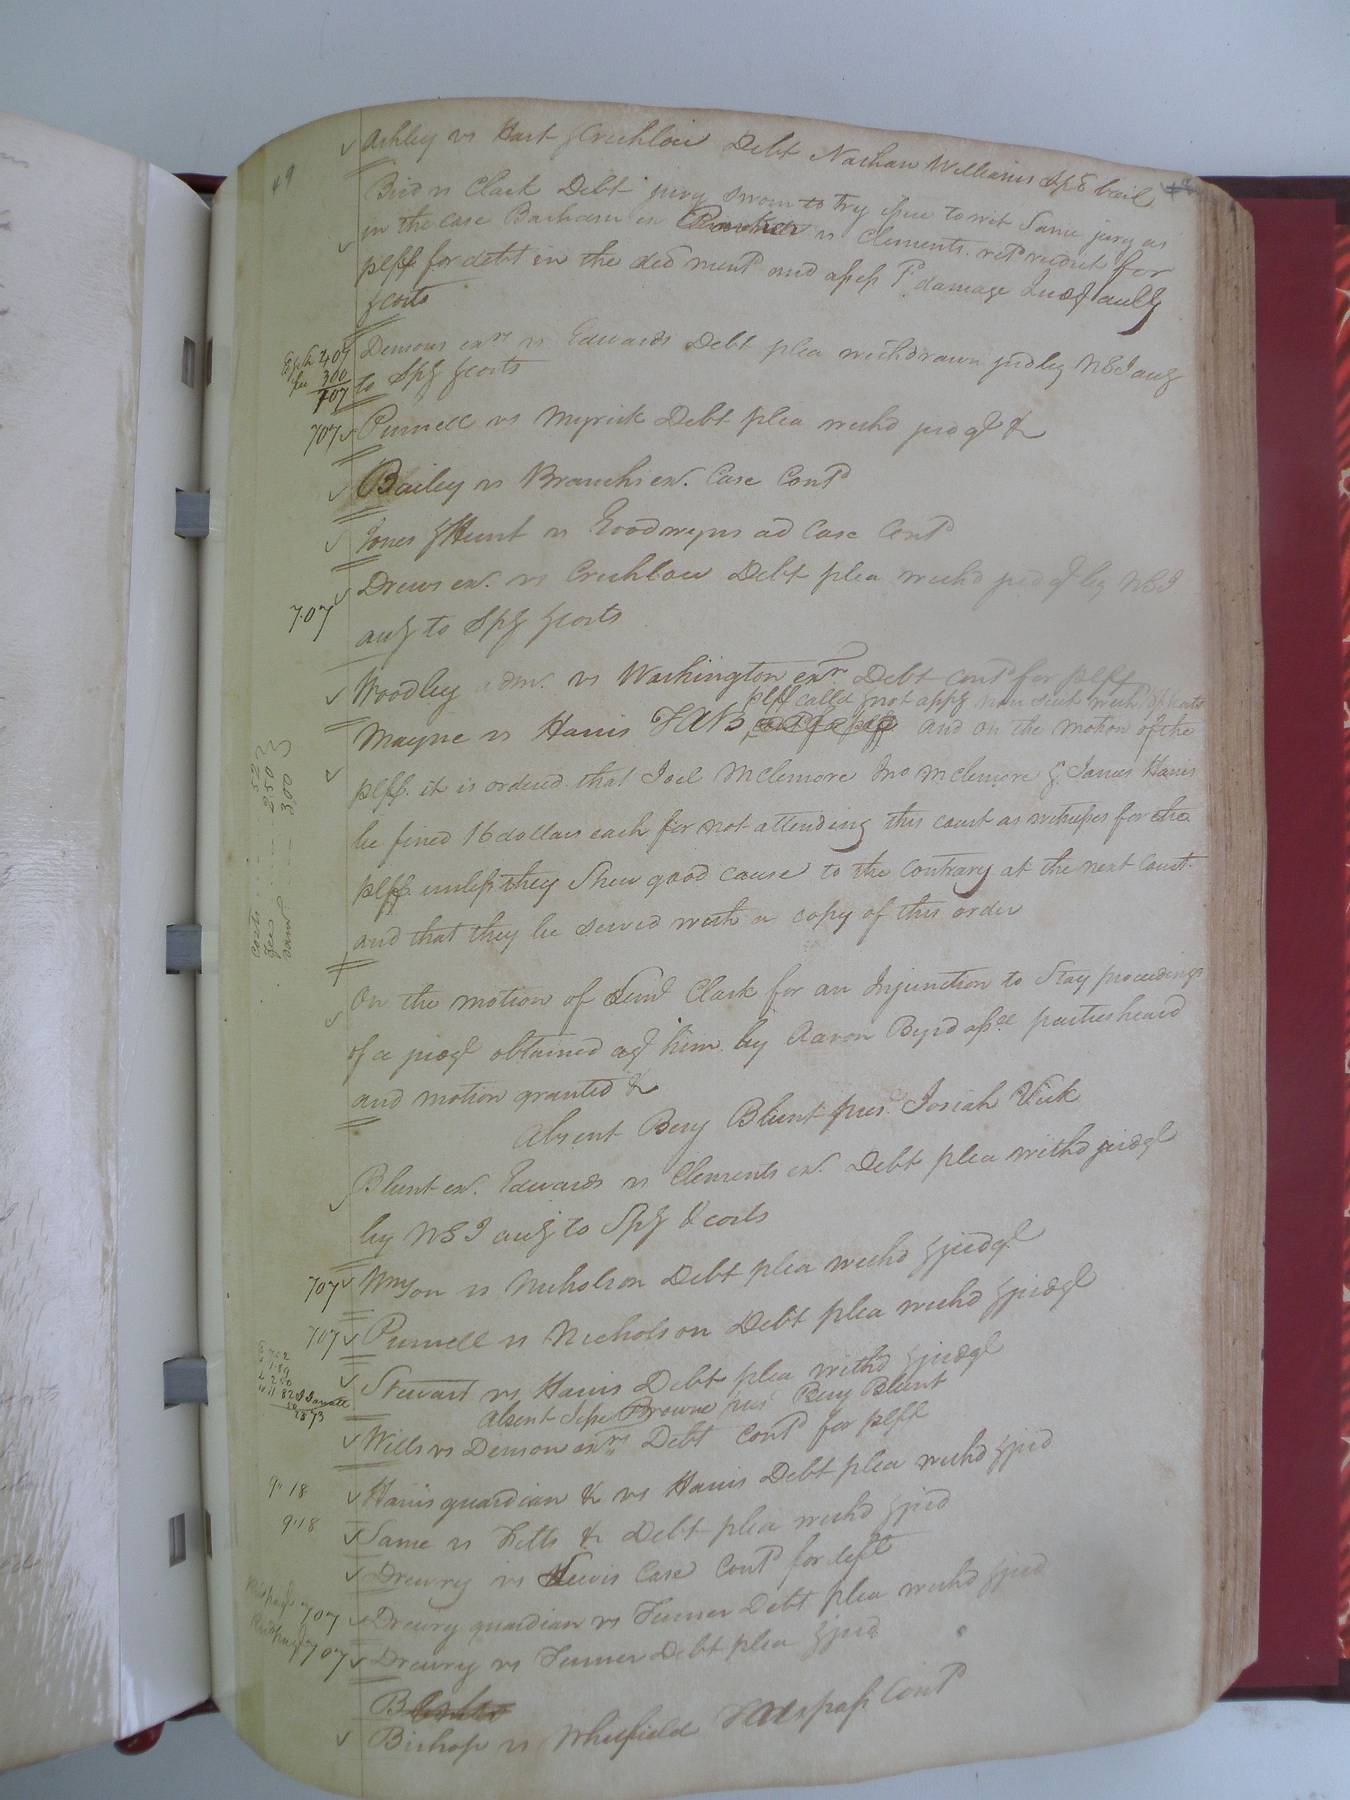 49
Ashley vs Hart & Crichlow Debt Nathan Williams Sp. bail
Bird vs Clark Debt jury sworn to try issue to wit Same jury as
in the case Barham ex vs Clements. retd verdict for
plff for debt in the decl ment and assess 1d damage
& costs
Densons exrs vs Edwards Debt plea withdrawn judg by NSI accg
to Spy & costs
407
fee 300
707
707 Purnell vs Myrick Debt plea withd judgt &c
Bailey vs Branchs ex. Case Contd
Jones & Hunt vs Goodwyns ad Case Contd
Drews ex. vs Crichlow Debt plea withd judgt by NSI
707
accg to Spy & costs
Woodley adm. vs Washington exr. Debt contd for plff
plff called & not appg non suit with costs
Mayne vs Harris TAB, and on the motion of the
plff. it is ordered that Joel McLemore Jno McLemore & James Harris
be fined 16 dollars each for not attending this court as witnesses for the
plff. unless they Shew good cause to the contrary at the next Court.
and that they be served with a copy of this order
costs 52
fees 250
300
On the motion of Clark for an Injunction to Stay proceedings
of a judgt obtained agt him by Aaron Byrd assee parties heard
and motion granted &c
Absent Benj Blunt pres. Josiah Vick
Blunt ex. Edwards vs Clements ex. Debt plea withd judgt
by NSI accg to Spy & costs
707 Myson vs Nicholson Debt plea withd & judgt
707 Purnell vs Nicholson Debt plea withd & judgt
Stewart vs Harris Debt plea withd & judgt
Absent Jesse Browne pres Benj Blunt
Wills vs Denson exrs Debt contd for plff
9"18 Harris guardian &c vs Harris Debt plea withd & jud
9"18 Same vs Felts &c Debt plea withd & jud
Drewry vs Lewis Case Contd for deft
707 Drewry guardian vs Turner Debt plea withd & jud
707 Drewry vs Turner Debt plea & jud
Bishop vs Whitfield Trespass Contd